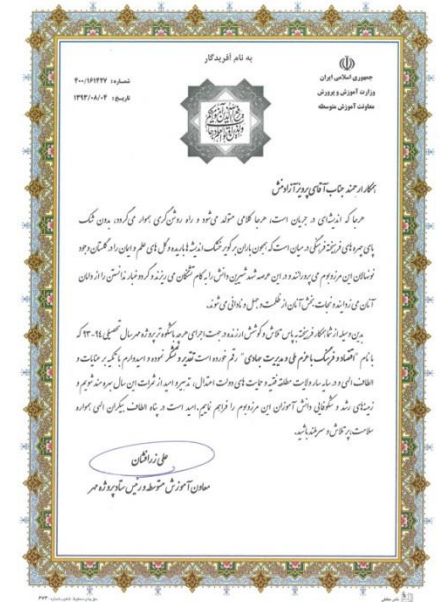 به نام آفریدگار
جمهوری اسلامی ایران
وزارت آموزش و پرورش
معاونت آموزش متوسطه
شماره: ۴۰۰/۱۶۱۴۲۷
تاریخ: ۱۳۹۳/۰۸/۰۴
همکار ارجمند جناب آقای پرویز آزادمنش
هرجا که اندیشه‌ای در جریان است، هرجا کلامی متولد می‌شود و راه روشن‌گری هموار می‌گردد، بدون شک
پای چهره‌های فرهیخته فرهنگی در میان است که همچون باران بر کویر خشک اندیشه‌ها باریده و گل‌های علم و ایمان را در گلستان وجود
نونهالان این مرزوبوم می‌پرورانند و در این عرصه شهد شیرین دانش را به کام تشنگان می‌ریزند و گرد و غبار ندانستن را از دامان
آنان می‌زدایند و نجات‌بخش آنان از ظلمت و جهل و نادانی می‌شوند.
بدین وسیله از شما همکار فرهیخته به پاس تلاش و کوشش ارزنده در جهت اجرای هرچه باشکوه‌تر پروژه مهر سال تحصیلی ۹۴-۹۳ که
با نام "اقتصاد و فرهنگ با عزم ملی و مدیریت جهادی" رقم خورده است تقدیر و تشکر نموده و امیدوارم با تکیه بر عنایات و
الطاف الهی و در سایه سار ولایت مطلقه فقیه و حمایت های دولت اعتدال، تدبیر و امید از ثمرات این سال بهره مند شویم و
زمینه‌های رشد و شکوفایی دانش آموزان این مرزوبوم را فراهم نماییم. امید است در پناه الطاف بیکران الهی همواره
سلامت، پرتلاش و سربلند باشید.
علی زرافشان
معاون آموزش متوسطه و رئیس ستاد پروژه مهر